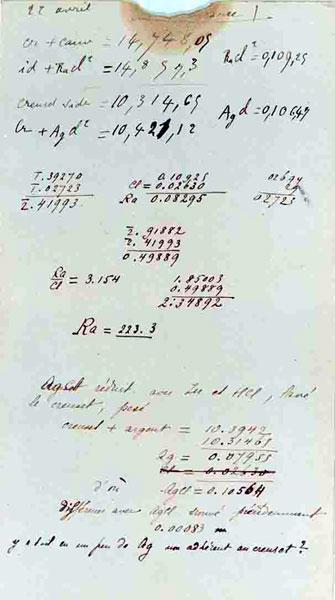 22 avril
cr + couv = 14,748,05
id + RaCl² = 14,857,3 RaCl² = 0,109,25
creuset vide = 10,314,65
Cr + AgCl² = 10,421,12 AgCl = 0,10647
1.39270 0.10925 02694
1.02723 Cl = 0.02630 29
2.41993 Ra 0.08295 02723
2.91882
2.41993
0.49889
Ra/Cl = 3.154 1.85003
0.49889
2.34892
Ra = 223.3
AgCl réduit avec Zn et HCl, lavé
le creuset, pesé
creuset + argent = 10.3942
10.31465
Ag = 0.07955
Cl = 0.02630
d'où AgCl = 0.10564
différence avec AgCl trouvé précédemment
0.00083
y a t-il eu un peu de Ag non adhérent au creuset ?